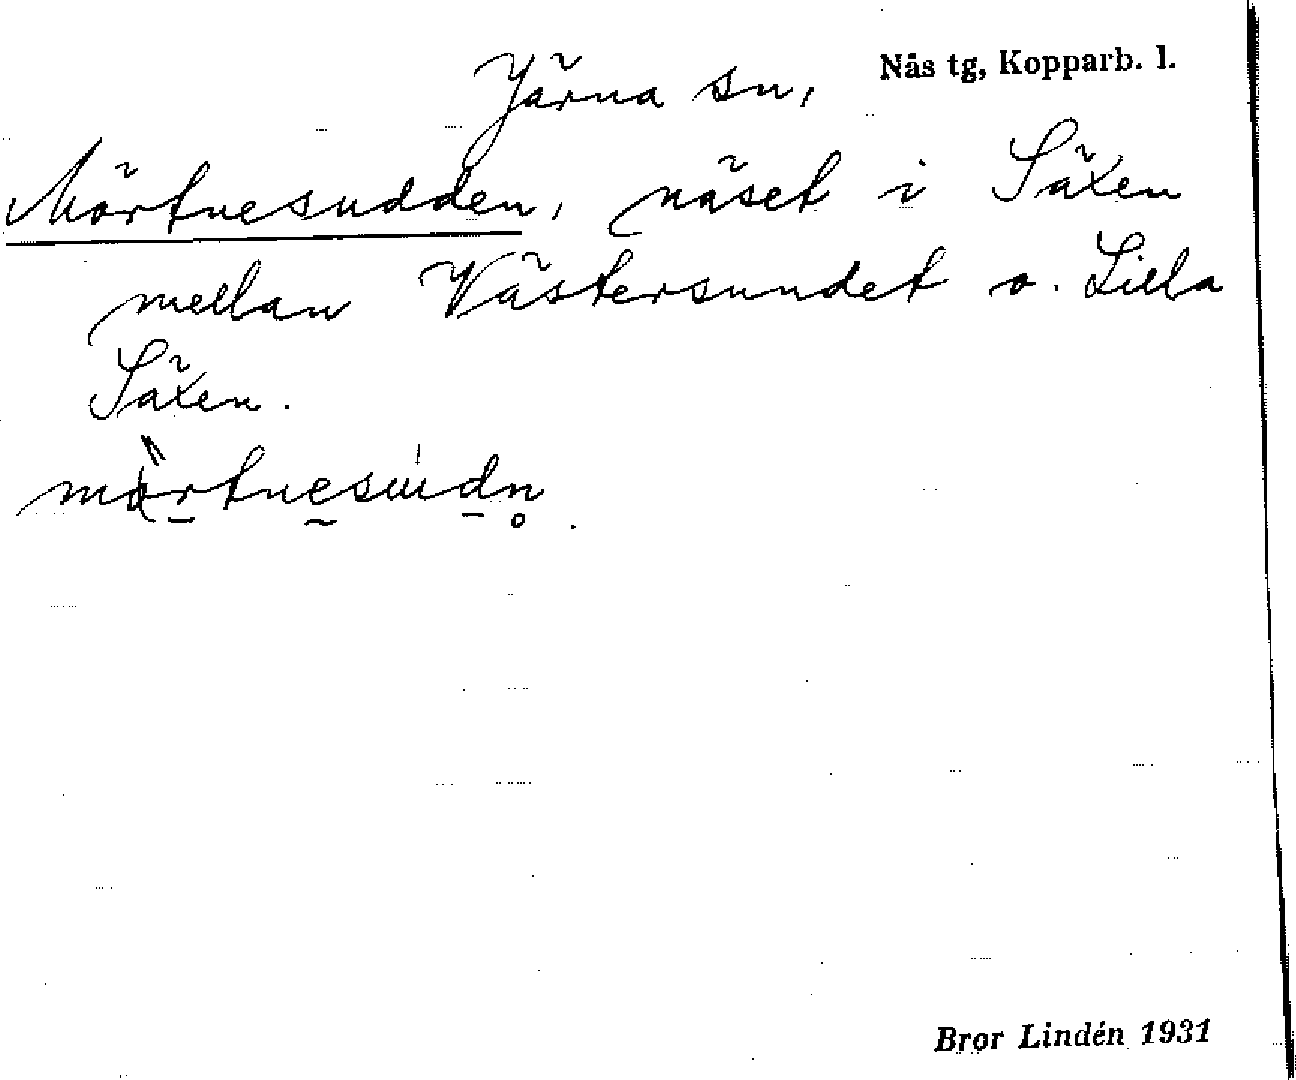 Järna sn, Nås tg, Kopparb. l.
Mörtnesudden, näset i Säxen
mellan Västersundet o. Lilla
Säxen.
Bror Lindén 1931